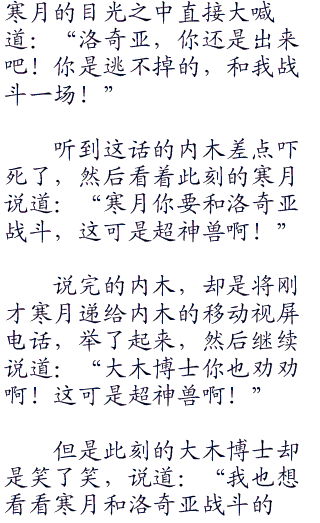 寒月的目光之中直接大喊
道：“洛奇亚，你还是出来
吧！你是逃不掉的，和我战
斗一场！”
听到这话的内木差点吓
死了，然后看着此刻的寒月
说道：“寒月你要和洛奇亚
战斗，这可是超神兽啊！”
说完的内木，却是将刚
才寒月递给内木的移动视屏
电话，举了起来，然后继续
说道：“大木博士你也劝劝
啊！这可是超神兽啊！”
但是此刻的大木博士却
是笑了笑，说道：“我也想
看看寒月和洛奇亚战斗的